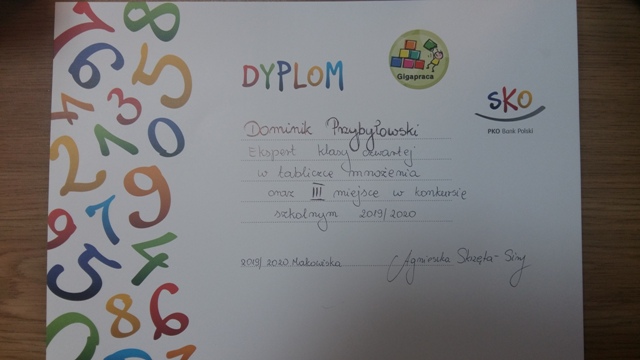 DYPLOM
Gigapraca
SKO
PKO Bank Polski
Dominik Przybyłowski
Ekspert klasy czwartej
w tabliczce mnożenia
oraz III miejsce w konkursie
szkolnym 2019/2020
2019/2020 Makowiska
Agnieszka